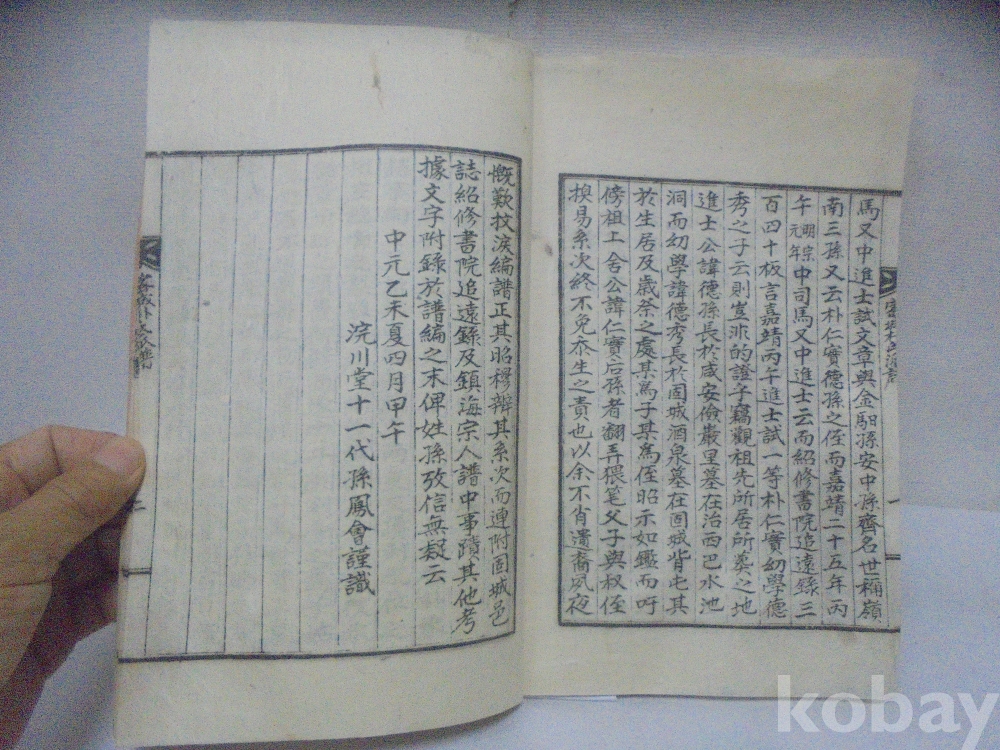 馬又中進士試文章與金馹孫安中孫齊名世稱嶺
南三孫又云朴仁實德孫之侄而嘉靖二十五年丙
午明宗元年中司馬又中進士云而紹修書院追遠錄三
百四十板言嘉靖丙午進士試一等朴仁實幼學德
秀之子云則豈非的證乎竊觀祖先所居所葬之地
進士公諱德孫長於咸安儉巖里墓在治西巴水池
洞而幼學諱德秀長於固城酒泉墓在固城背屯其
於生居及歲祭之處某爲子某爲侄昭示如鑑而吁
傍祖上舍公諱仁實后孫者翻弄猥笔父子與叔侄
換易系次終不免忝生之責也以余不肖遺裔夙夜
慨歎抆淚編譜正其昭穆辨其系次而連附固城邑
誌紹修書院追遠錄及鎮海宗人譜中事蹟其他考
據文字附錄於譜編之末俾姓孫攷信無疑云
中元乙未夏四月甲午
浣川堂十一代孫鳳會謹識
kobay